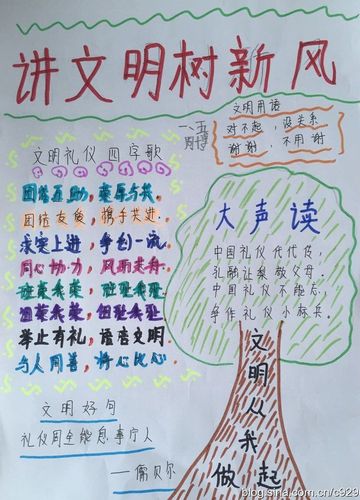 讲文明树新风
一、五
文明用语
对不起，没关系
谢谢，不用谢
文明礼仪四字歌
团结互助，荣辱与共．
团结友爱，携手共进．
求实上进，争创一流
同心协力，风雨共舟．
举止有礼，语言文明
与人同善，将心比心
大声读
中国礼仪代代传，
孔融让梨敬父母．
中国礼仪不能忘，
争作礼仪小标兵．
文明从我
做起
文明好句
礼仪周全能息事宁人
——儒贝尔
blog.sina.com.cn/c929